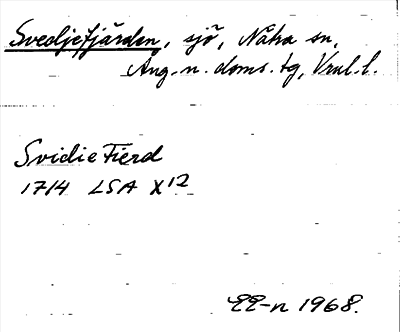 Svedjefjärden, sjö, Nätra sn,
Ång. n. doms. tg, Vnrl. l.
Svidie Fierd
1714 LSA X12
EE-n 1968.